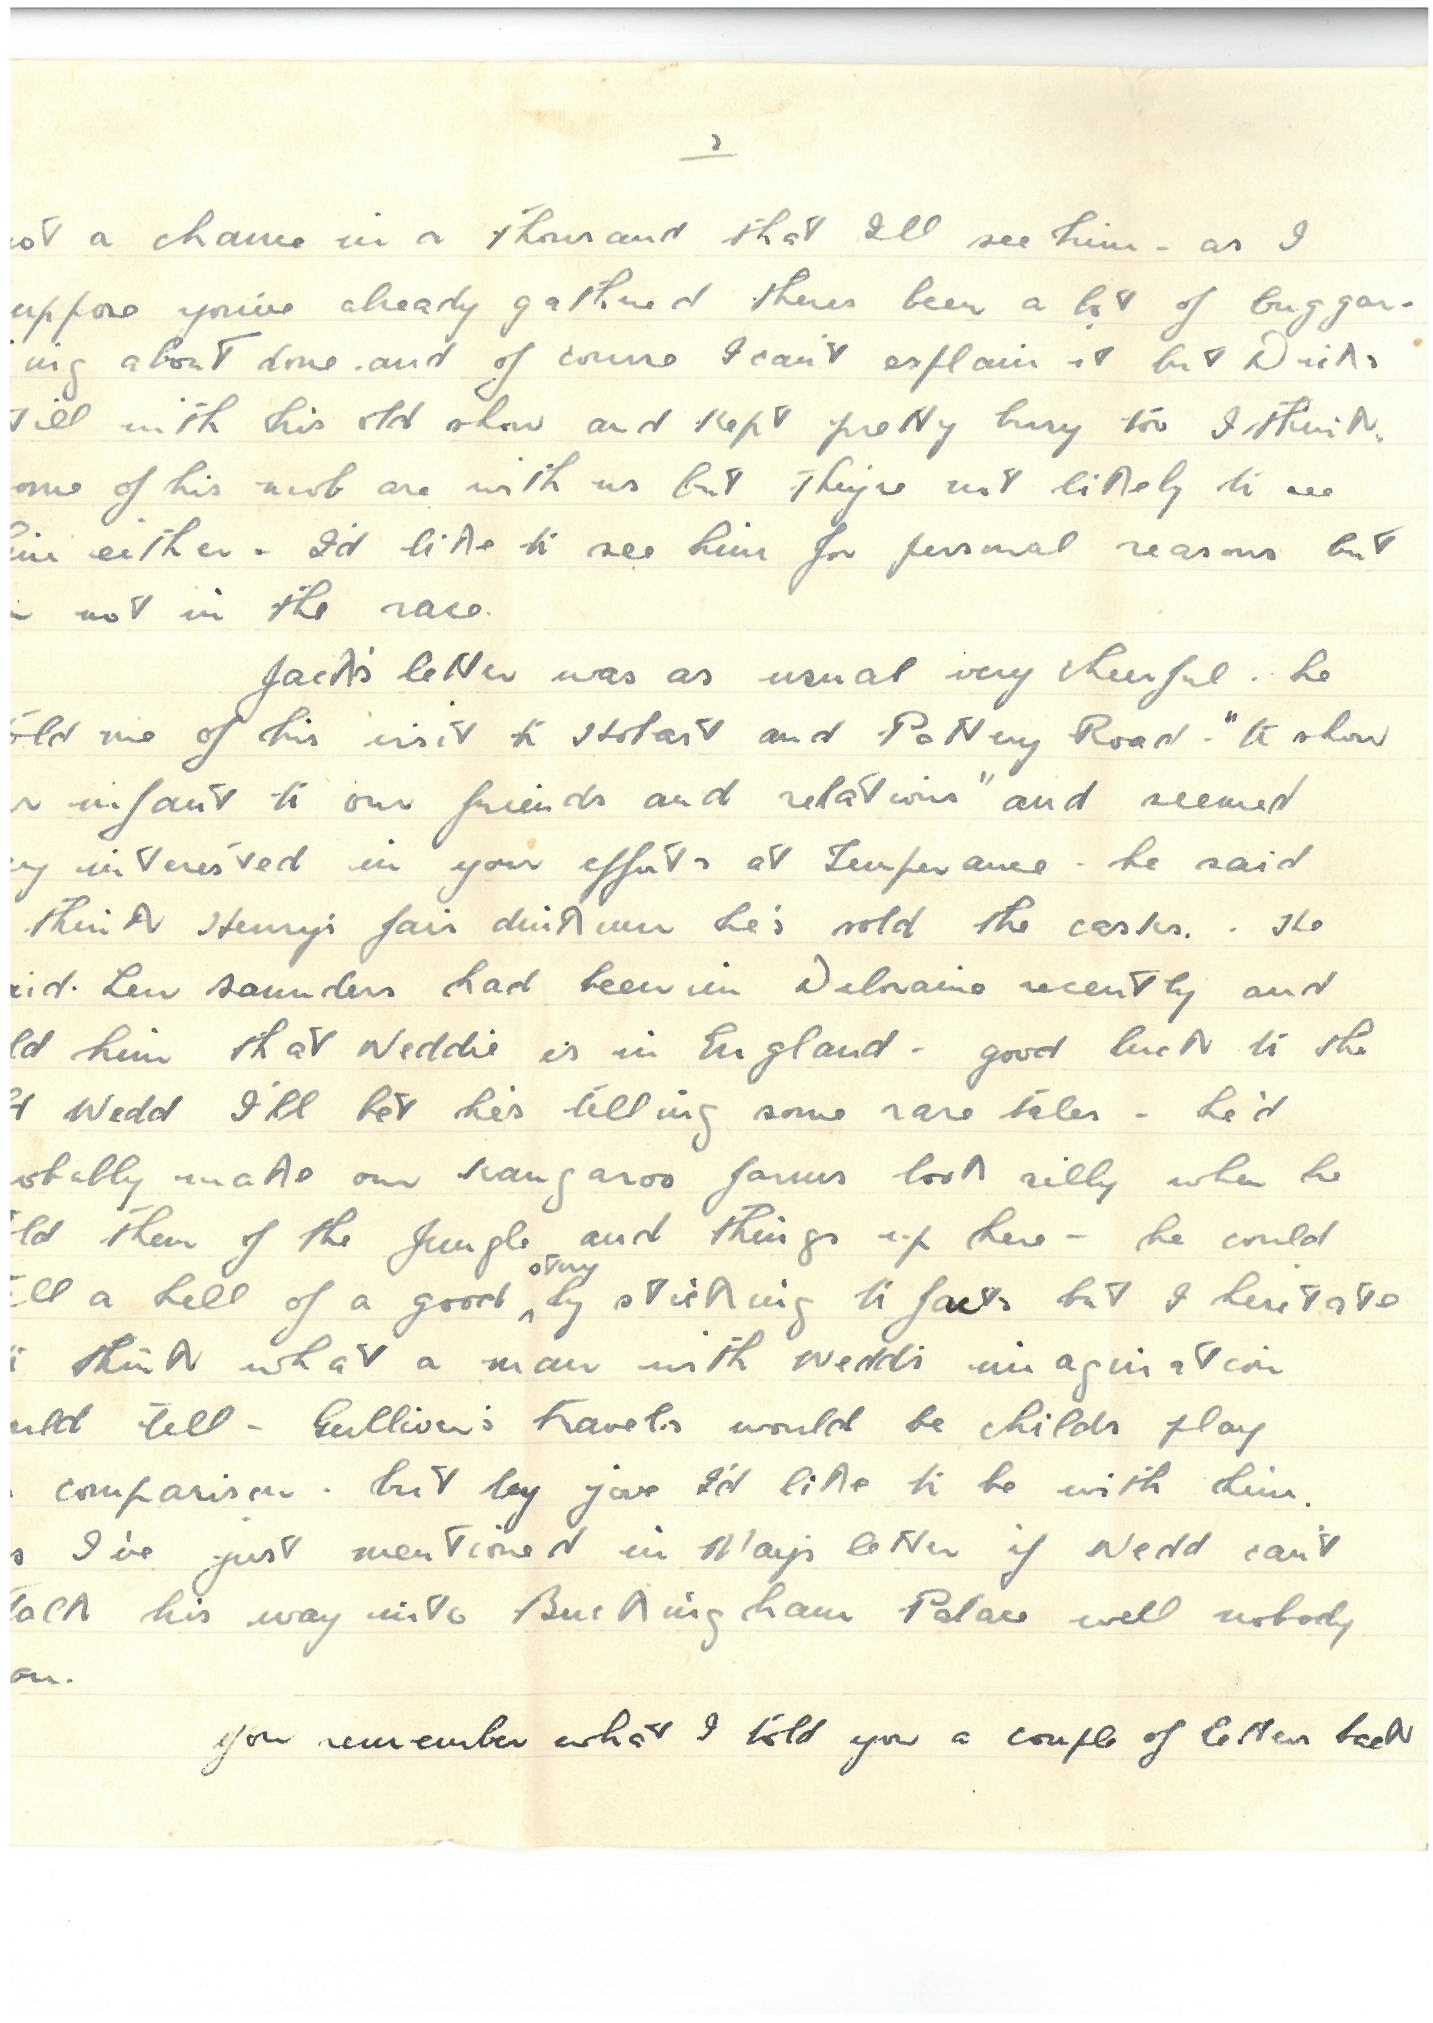 2
not a chance in a thousand that I'll see him - as I
suppose you've already gathered theres been a lot of buggar-
ing about done. and of course I can't explain it but Dick's
still with his old show and kept pretty busy too I think.
some of his mob are with us but they're not likely to see
him either - I'd like to see him for personal reasons but
not in the race.
Jack's letter was as usual very cheerful. he
told me of his visit to Hobart and Pottery Road - "to show
our infant to our friends and relations" and seemed
very interested in your efforts at Temperance - he said
think Henry's fair dinkum he's sold the casks. . He
said. Len Saunders had been in Deloraine recently and
told him that Neddie is in England - good luck to the
old Nedd I'll bet he's telling some rare tales - he'd
probably make our kangaroo farms look silly when he
told them of the Jungle and things up here - he could
tell a hell of a good story by sticking to facts but I hesitate
to think what a man with Nedd's imagination
could tell - Gulliver's Travels would be childs play
comparison. but by jove I'd like to be with him.
As I've just mentioned in May's letter if Nedd can't
talk his way into Buckingham Palace well nobody
can.
You remember what I told you a couple of letters back